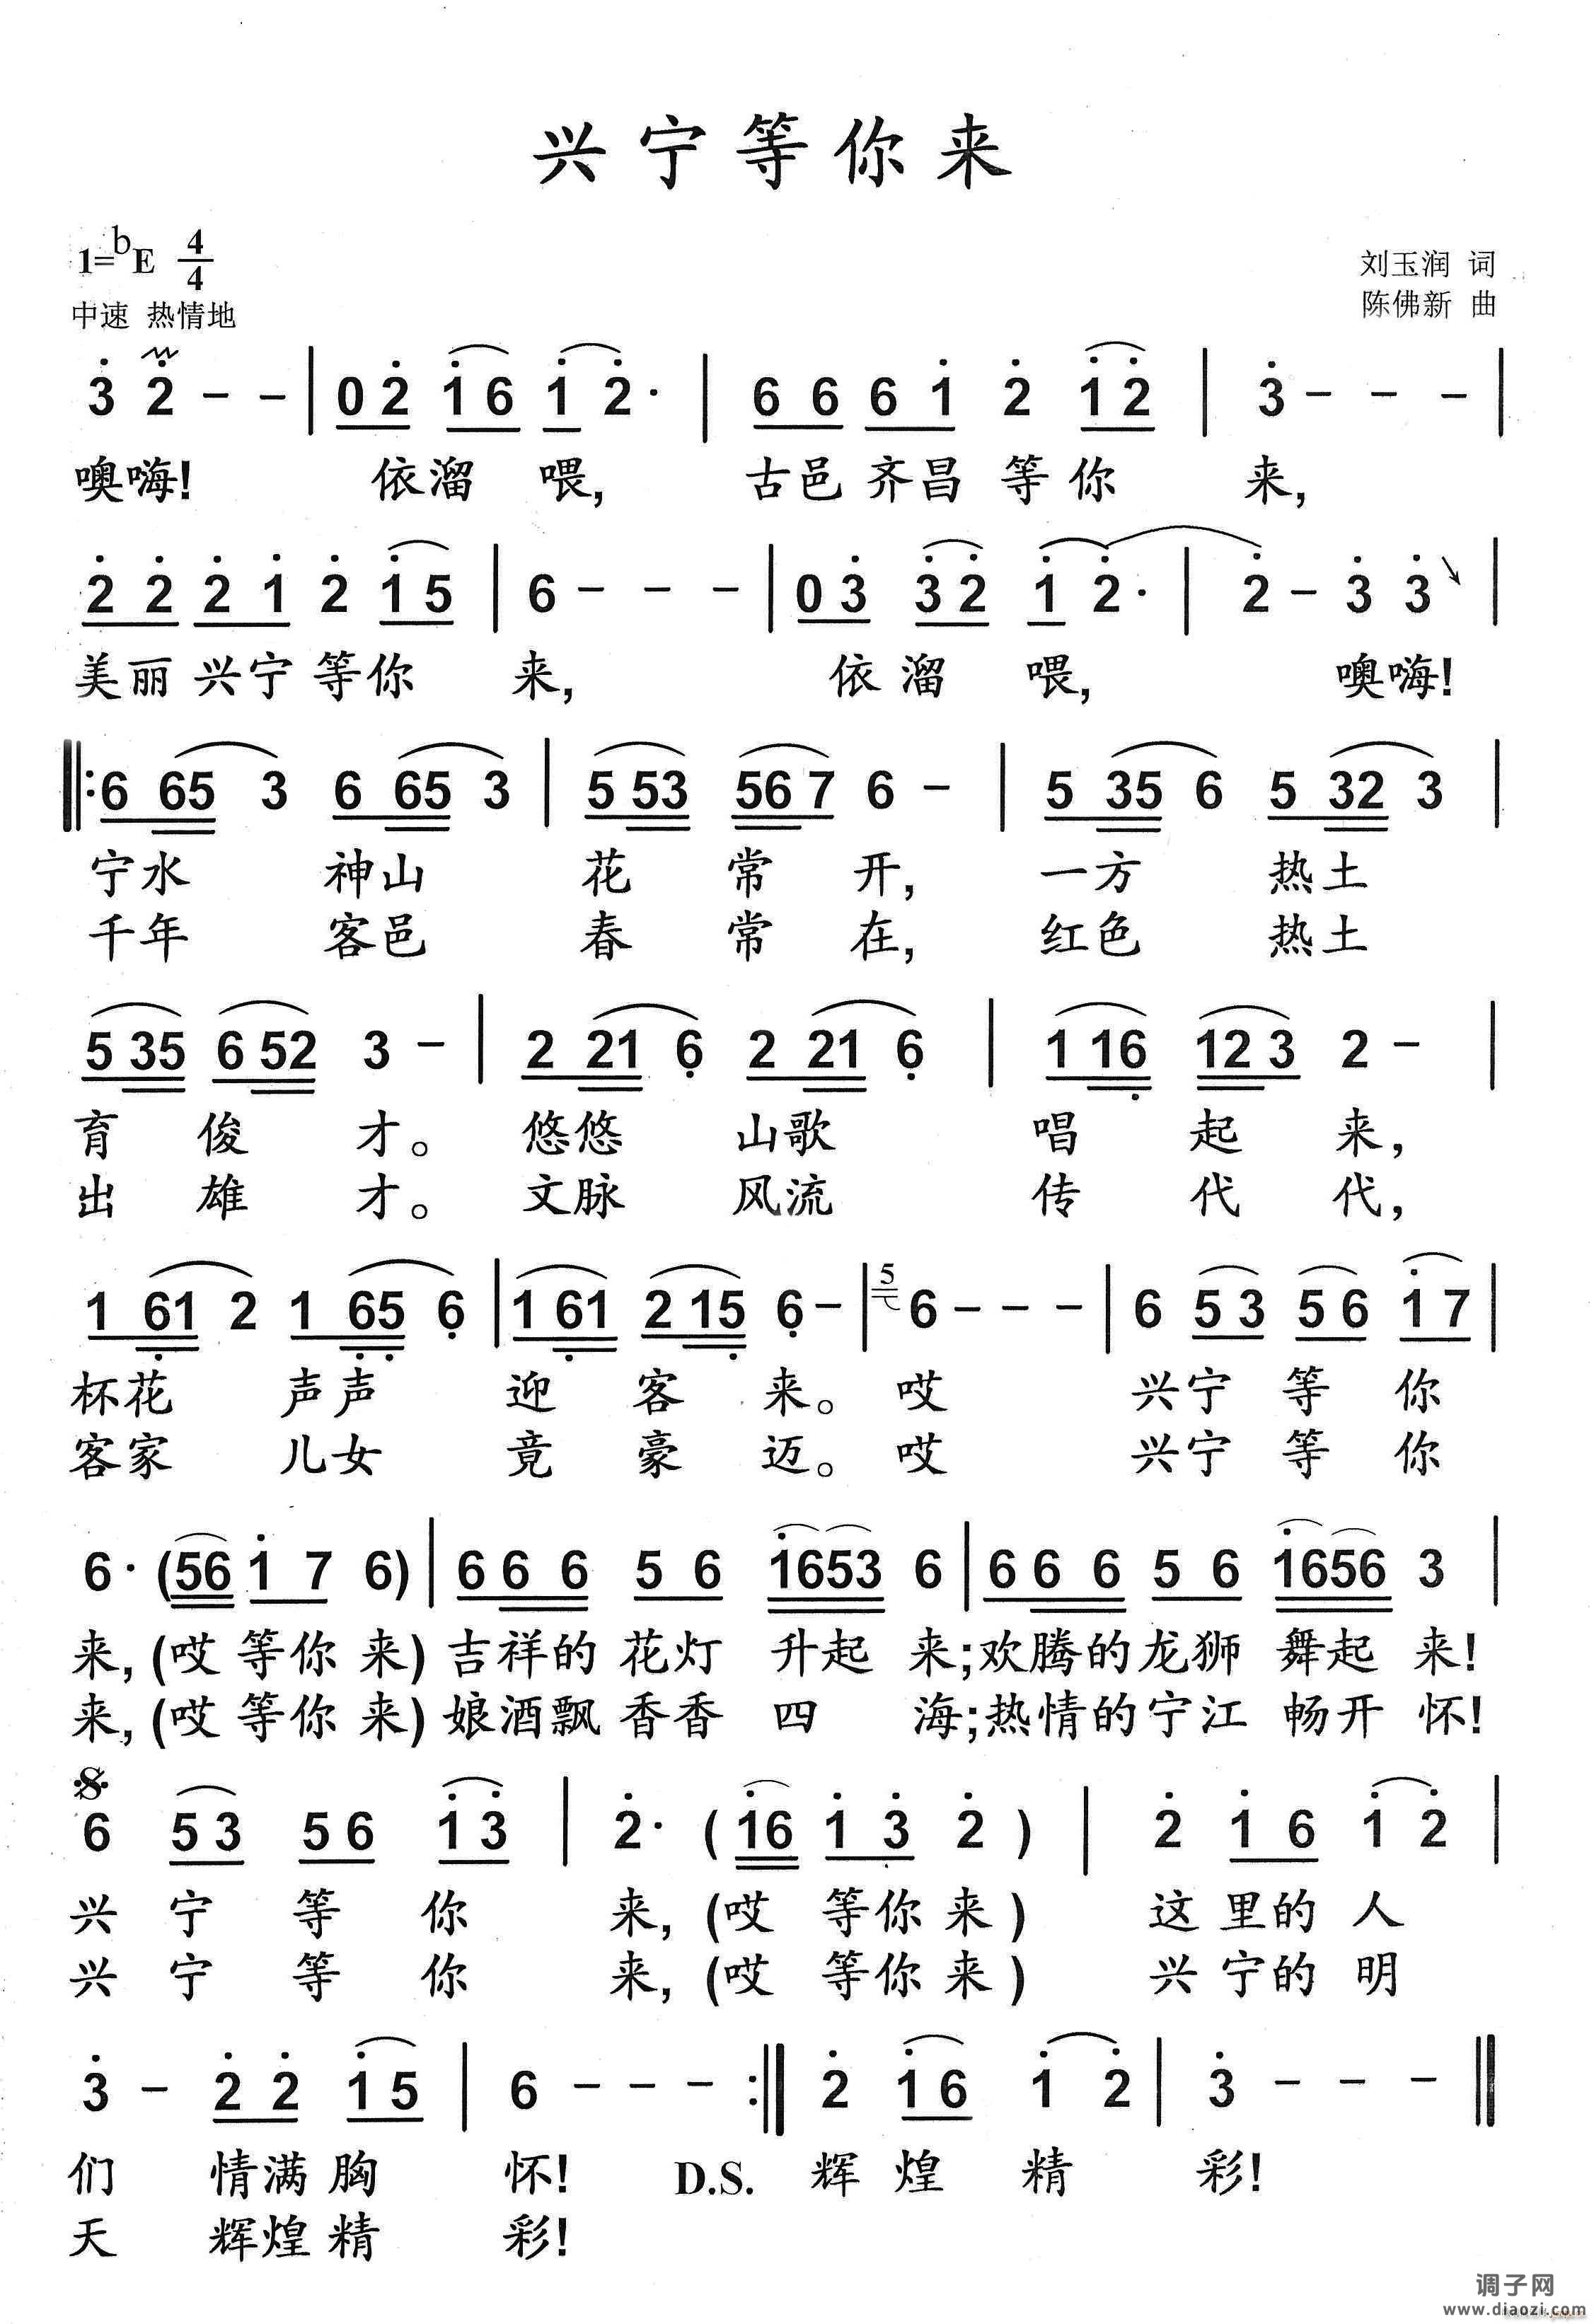 兴宁等你来
1=bE 4/4
刘玉润 词
中速 热情地
陈佛新 曲
3 2 - - | 0 2 1 6 1 2· | 6 6 6 1 2 1 2 | 3 - - - |
噢嗨! 依溜 喂, 古邑齐昌等你 来,
2 2 2 1 2 1 5 | 6 - - - | 0 3 3 2 1 2· | 2 - 3 3 ↘ |
美丽兴宁等你 来, 依溜 喂, 噢嗨!
‖: 6 65 3 6 65 3 | 5 53 56 7 6 - | 5 35 6 5 32 3 |
宁水 神山 花 常 开, 一方 热土
千年 客邑 春 常 在, 红色 热土
5 35 6 52 3 - | 2 21 6 2 21 6 | 1 16 12 3 2 - |
育 俊 才。 悠悠 山歌 唱 起 来,
出 雄 才。 文脉 风流 传 代 代,
1 61 2 1 65 6 | 1 61 2 15 6 - | 5 6 - - - | 6 5 3 5 6 1 7 |
杯花 声声 迎 客 来。 哎 兴宁 等 你
客家 儿女 竟 豪 迈。 哎 兴宁 等 你
6· (56 1 7 6) | 6 6 6 5 6 1653 6 | 6 6 6 5 6 1656 3 |
来,(哎 等你 来) 吉祥的 花灯 升起 来;欢腾的龙狮 舞起 来!
来,(哎 等你 来) 娘酒飘 香香 四 海;热情的宁江 畅开 怀!
𝄋
6 5 3 5 6 1 3 | 2· (16 1 3 2) | 2 1 6 1 2 |
兴 宁 等 你 来,(哎 等你来) 这里的 人
兴 宁 等 你 来,(哎 等你来) 兴宁的 明
3 - 2 2 1 5 | 6 - - - :‖ 2 1 6 1 2 | 3 - - - ‖
们 情满胸 怀! D.S. 辉 煌 精 彩!
天 辉煌精 彩!
调子网
www.diaozi.com